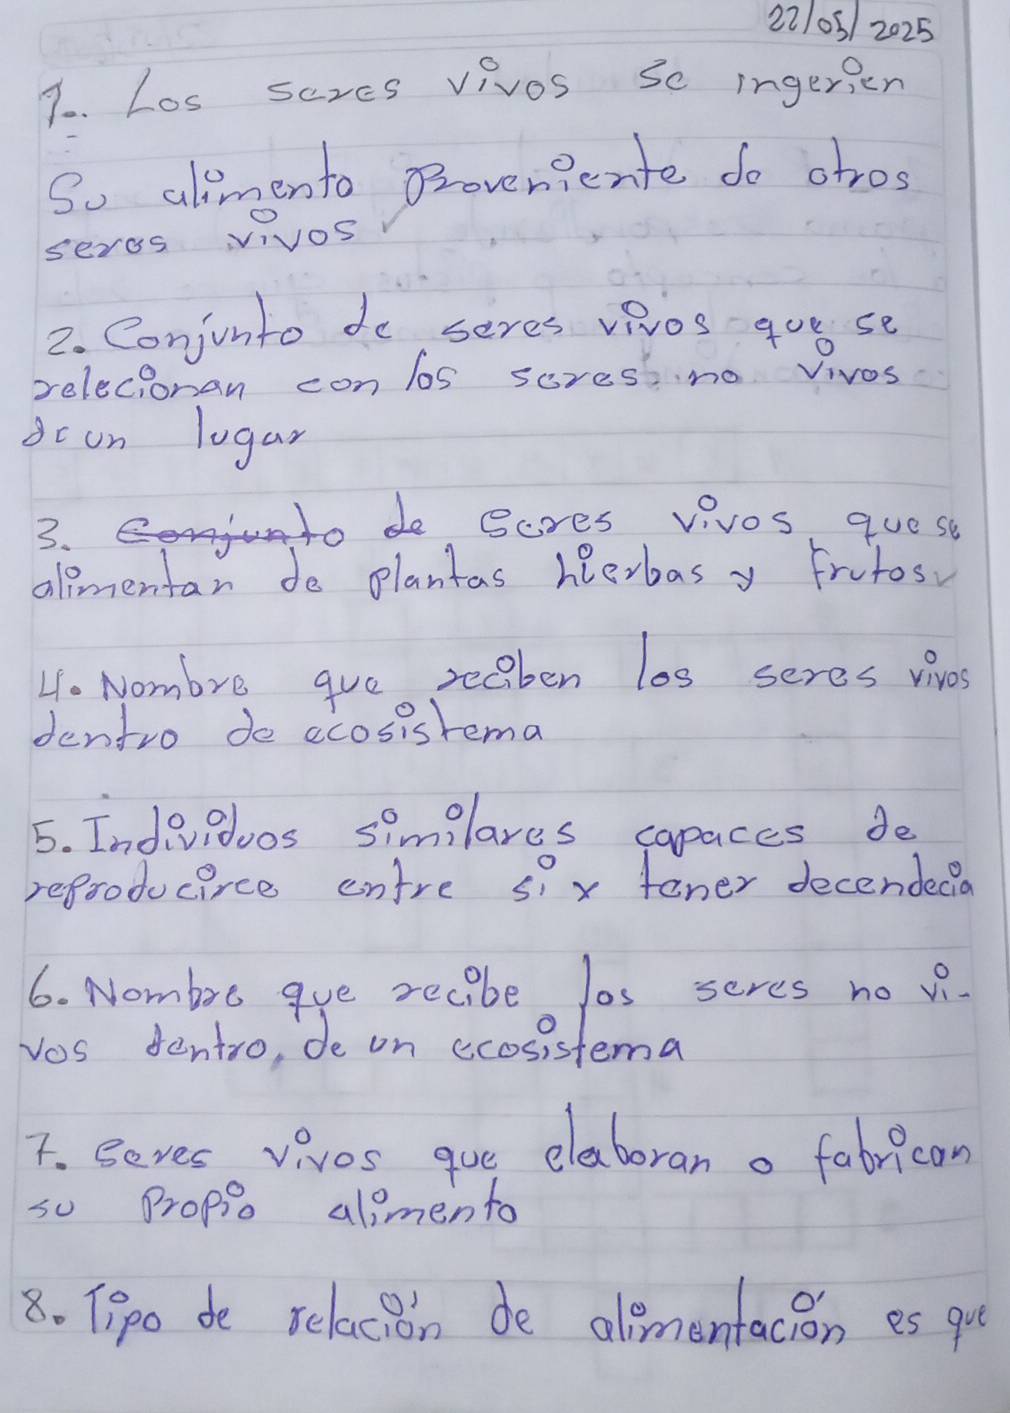 22/05/2025
1. Los seres vivos se ingerien
Su alimento Proveniente de otros
seres vivos
2. Conjunto de seres vivos que se
relecionan con los seres no vivos
de un lugar
3. Conjunto de Seres vivos que se
alimentan de plantas hierbas y frutos
4. Nombre que reciben los seres vivos
dentro de ecosistema
5. Individuos similares capaces de
reproducirce entre si y tener decendecia
6. Nombre que recibe los seres no vi-
vos dentro, de un ecosistema
7. Seres vivos que elaboran o fabrican
su Propio alimento
8. Tipo de relación de alimentación es que